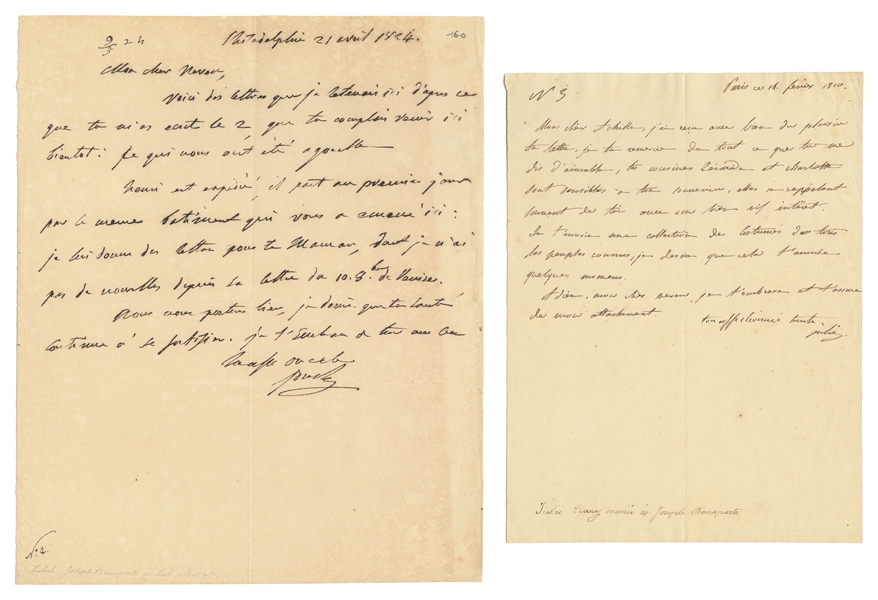 9/3 24
Philadelphie 21 avril 1824.
160
Mon cher Neveu,
Voici des lettres que je retenais ici d'après ce
que tu m'as écrit le 2, que tu comptais venir ici
bientôt: Je qui vous ont été
est expédié, il part au premier jour
par le même bâtiment qui vous a amené ici:
je lui donne des lettres pour ta Maman, dont je n'ai
pas de nouvelles depuis sa lettre du 10. 8.bre de
Nous nous portons bien, je désire que ta santé
continue à se fortifier. je t'embrasse de tout mon
oncle
Joseph
N.2.
Joseph Bonaparte à Murat
N 5
Paris ce 16 février 1810.
Mon cher Achille, j'ai reçu avec bien du plaisir
ta lettre, je te remercie de tout ce que tu me
dis d'aimable, tes cousines Zénaïde et Charlotte
sont sensibles à ton souvenir, elles se rappellent
de toi avec un bien vif intérêt.
Je t'envoie une collection de costumes de tous
les peuples connus, je désire que cela t'amuse
quelques momens.
Adieu, mon cher neveu, je t'embrasse et t'assure
de mon attachement
ton affectionnée tante
julie
Julie Clary mariée à Joseph Bonaparte